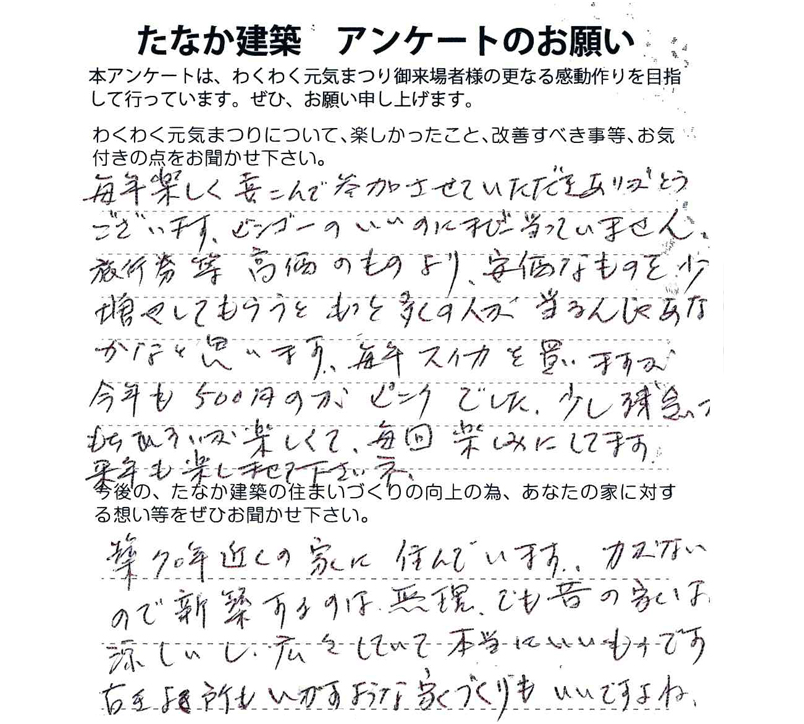 たなか建築　アンケートのお願い
本アンケートは、わくわく元気まつり御来場者様の更なる感動作りを目指
して行っています。ぜひ、お願い申し上げます。
わくわく元気まつりについて、楽しかったこと、改善すべき事等、お気
付きの点をお聞かせ下さい。
毎年楽しく喜こんで参加させていただきありがとう
ございます。ビンゴーのいいのにまだ当っていません。
旅行券等 高価のものより、安価なものを少
増やしてもらうと もっと多くの人が 当るんじゃあな
かなと思います。毎年スイカを買いますが
今年も 500円のが ピンク でした。少し残念
もちひろいが楽しくて、毎回 楽しみにしてます。
来年も楽しませて下さいネ。
今後の、たなか建築の住まいづくりの向上の為、あなたの家に対す
る想い等をぜひお聞かせ下さい。
築70年近くの家に 住んでいます。カズない
ので新築するのは無理、でも昔の家は
涼しいし、広々していて本当にいいものです
古き良き所もいかすような家づくりもいいですよね。